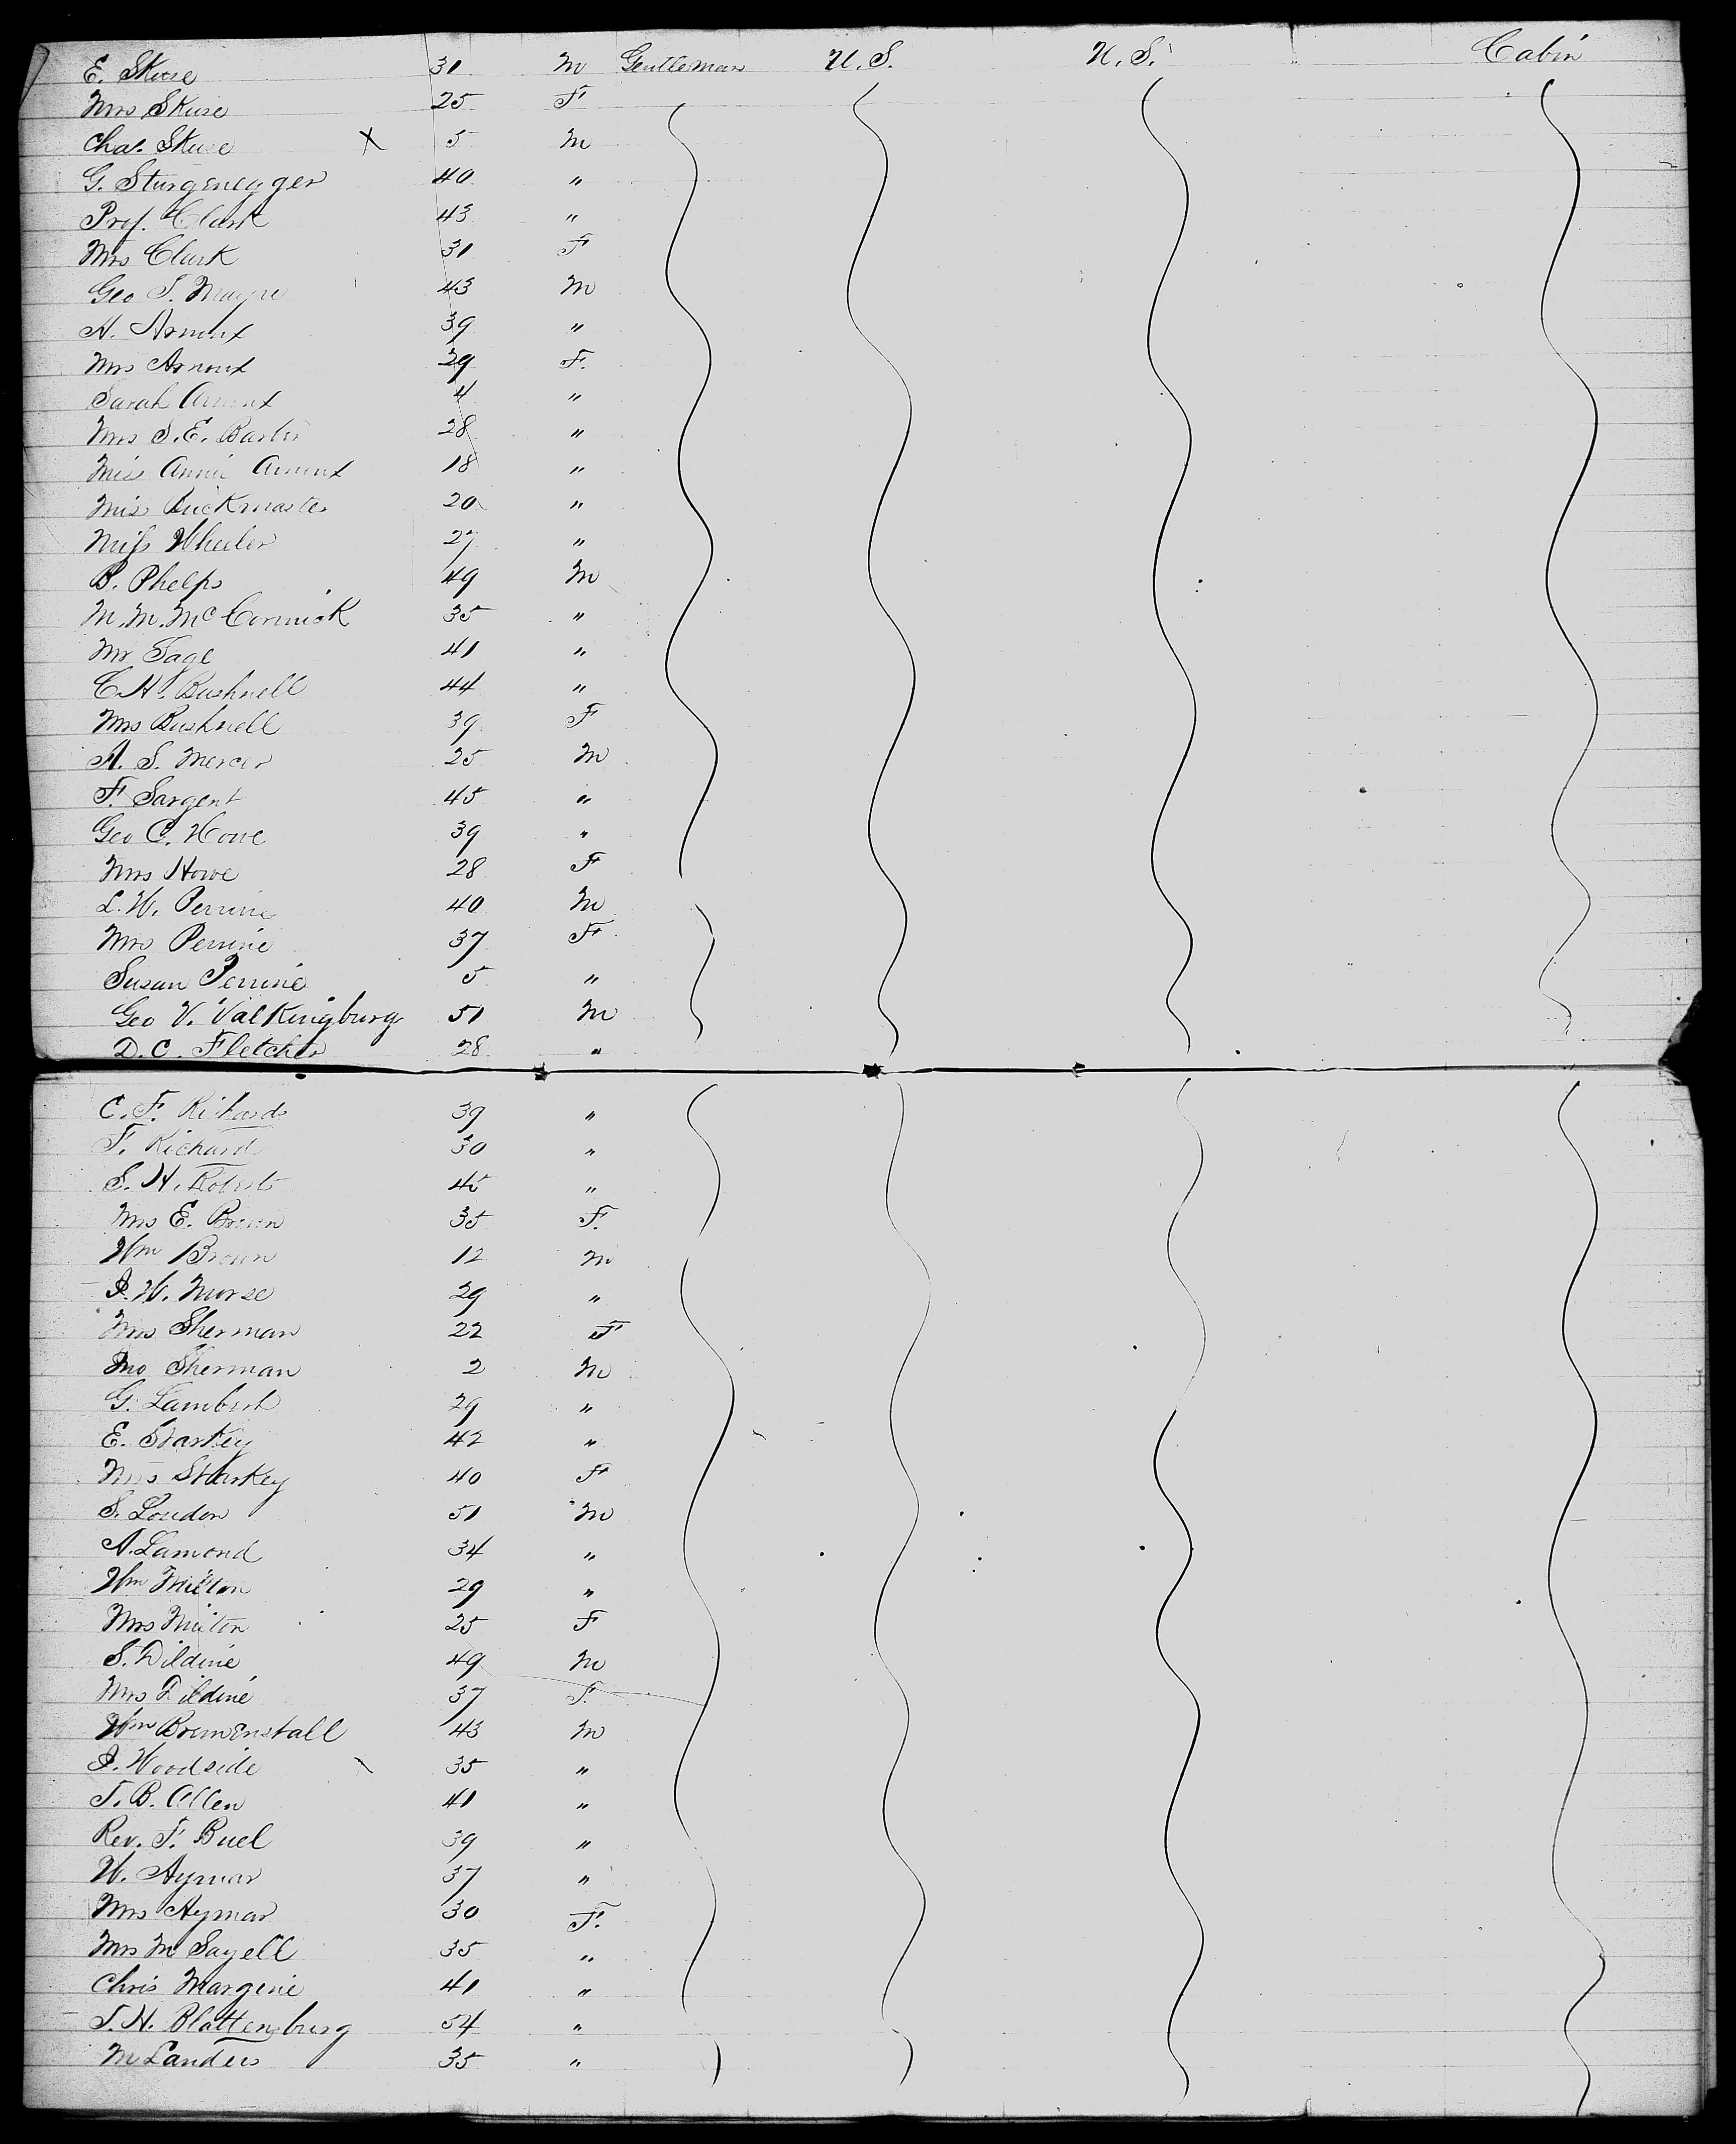 E. Skuse 31 M Gentleman U.S. U.S. Cabin
Mrs Skuse 25 F
Chas. Skuse X 5 M
G. Sturgenegger 40 "
Prof. Clark 43 "
Mrs Clark 31 F
Geo S. Mayre 43 M
A. Arnoux 39 "
Mrs Arnoux 29 F.
Sarah Arnoux 4 "
Mrs S.E. Barber 28 "
Miss Annie Arnoux 18 "
Miss Buckmaster 20 "
Miss Wheeler 27 "
B. Phelps 49 M
M.M. McCormick 35 "
Mr Sage 41 "
C.H. Bushnell 44 "
Mrs Bushnell 39 F
A. S. Mercer 25 M
F. Sargent 45 "
Geo C. Howe 39 "
Mrs Howe 28 F
L.W. Perrine 40 M
Mrs Perrine 37 F
Susan Perrine 5 "
Geo V. Valkingburg 51 M
D.C. Fletcher 28 "
C.F. Richards 39 "
F. Richards 30 "
S.H. Roberts 45 "
Mrs E. Brown 35 F.
Wm Brown 12 M
I.W. Morse 29 "
Mrs Sherman 22 F
Jno Sherman 2 M
G. Lambert 29 "
E. Starkey 42 "
Mrs Starkey 40 F
S. Loudon 51 M
A. Lamond 34 "
Wm Milton 29 "
Mrs Milton 25 F
S. Dildine 49 M
Mrs Dildine 37 F.
Wm Bremenstall 43 M
I. Woodside 35 "
T.B. Allen 41 "
Rev. F. Buel 39 "
W. Aymar 37 "
Mrs Aymar 30 F.
Mrs M Sayell 35 "
Chris Margerie 41 "
T.H. Blattenburg 54 "
M Landers 35 "